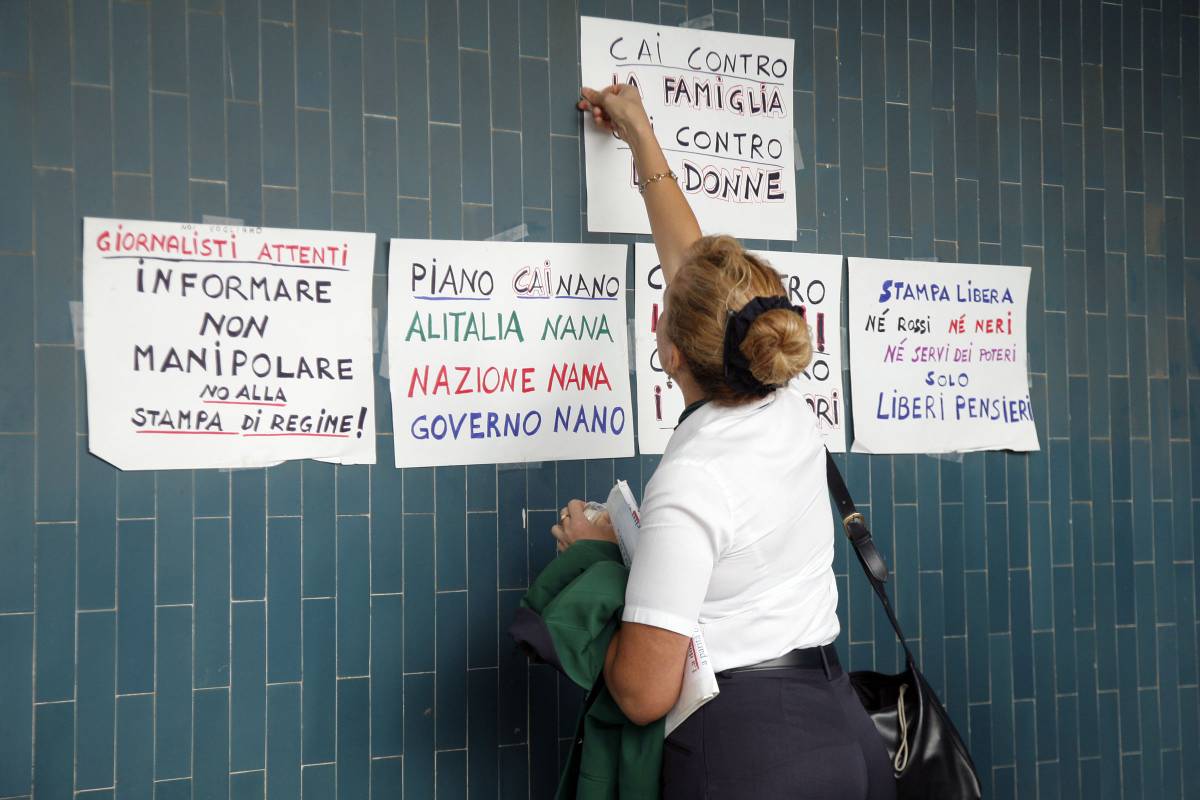 CAI CONTRO
LA FAMIGLIA
CONTRO
DONNE
GIORNALISTI ATTENTI
INFORMARE
NON
MANIPOLARE
NO ALLA
STAMPA DI REGIME!
PIANO CAINANO
ALITALIA NANA
NAZIONE NANA
GOVERNO NANO
STAMPA LIBERA
NÉ ROSSI NÉ NERI
NÉ SERVI DEI POTERI
SOLO
LIBERI PENSIERI